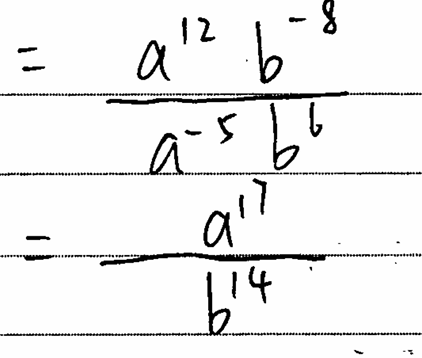 = a^{12} b^{-8}
a^{-5} b^{6}
= a^{17}
b^{14}